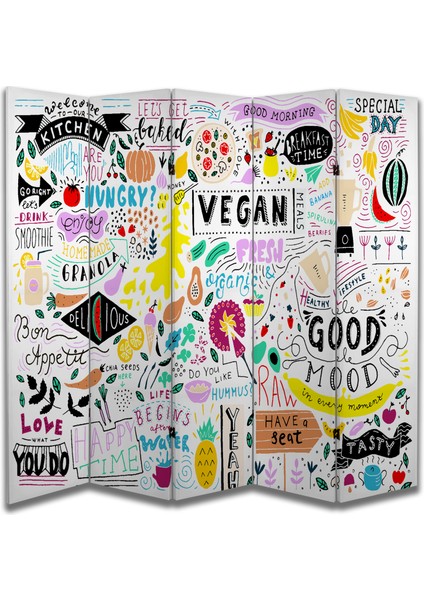 Welcome
TO OUR
KITCHEN
GO RIGHT
let's
DRINK
SMOOTHIE
ARE
YOU
HUNGRY?
enjoy
HOMEMADE
GRANOLA
DELICIOUS
Bon
Appétit
CHIA SEEDS
HERE
LOVE
WHAT
YOU DO
HAPPY
TIME
LET'S GET
baked
HONEY
LIFE
BEGINS
after
WATER
GOOD MORNING
BREAKFAST
TIME
VEGAN
MEALS
FRESH
organic &
DO YOU
LIKE
HUMMUS?
YEAH
RAW
HAVE A
seat
SPECIAL
DAY
BANANA
SPIRULINA
BERRIES
HEALTHY
LIFESTYLE
GOOD
MOOD
in every moment
TASTY